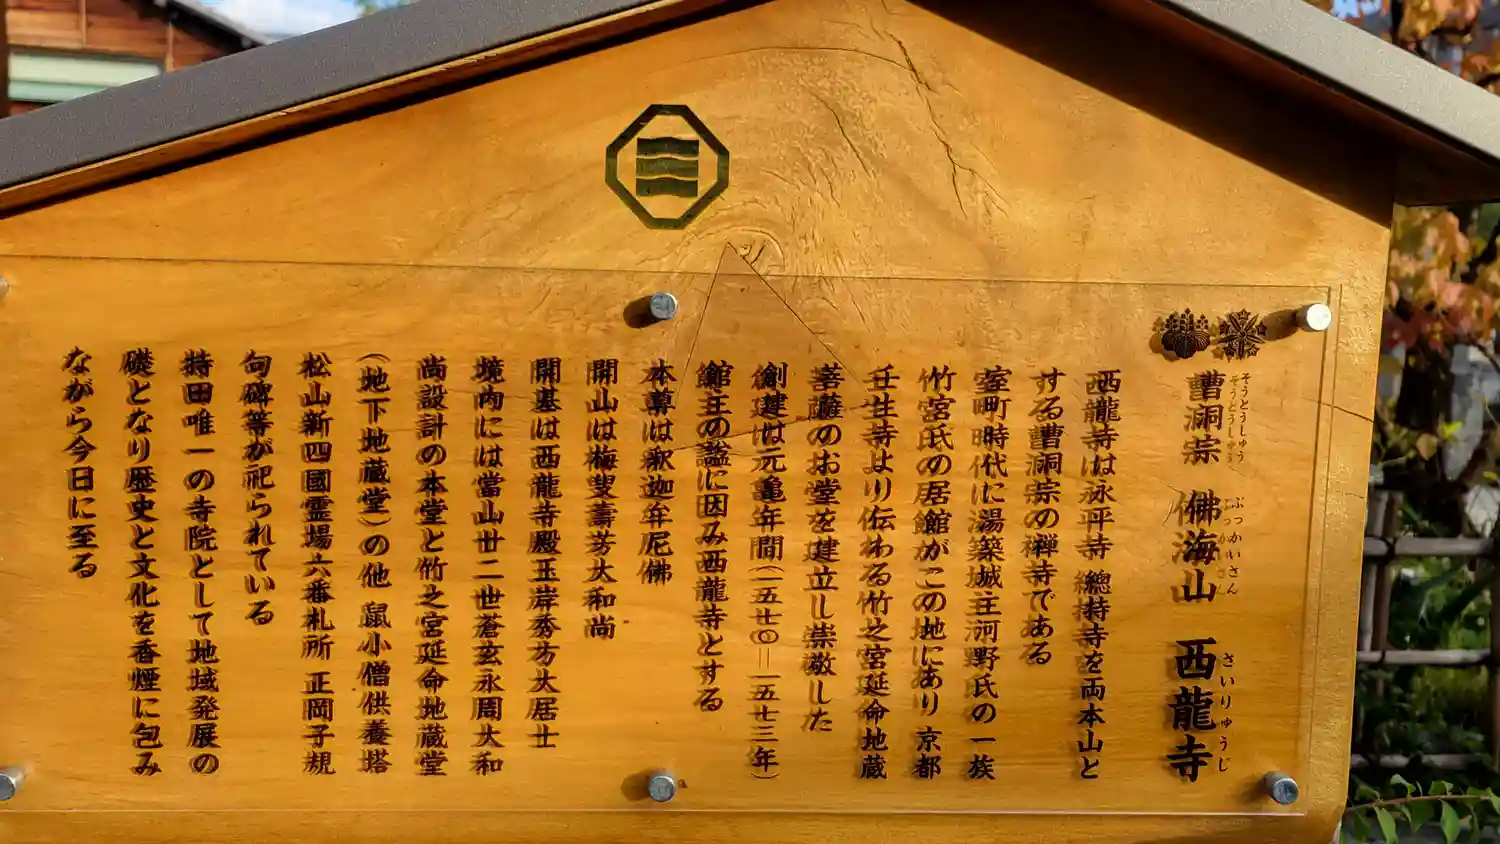 曹洞宗 佛海山 西龍寺
そうとうしゅう ぶつかいさん さいりゅうじ
西龍寺は永平寺 總持寺を両本山と
する曹洞宗の禅寺である
室町時代に湯築城主河野氏の一族
竹宮氏の居館がこの地にあり 京都
壬生寺より伝わる竹之宮延命地蔵
菩薩のお堂を建立し崇敬した
創建は元亀年間(一五七〇=一五七三年)
館主の謚に因み西龍寺とする
本尊は釈迦牟尼佛
開山は梅叟壽芳大和尚
開基は西龍寺殿玉岸秀方大居士
境内には當山廿二世蒼玄永周大和
尚設計の本堂と竹之宮延命地蔵堂
(地下地蔵堂)の他 鼠小僧供養塔
松山新四國霊場六番札所 正岡子規
句碑等が祀られている
持田唯一の寺院として地域発展の
礎となり歴史と文化を香煙に包み
ながら今日に至る